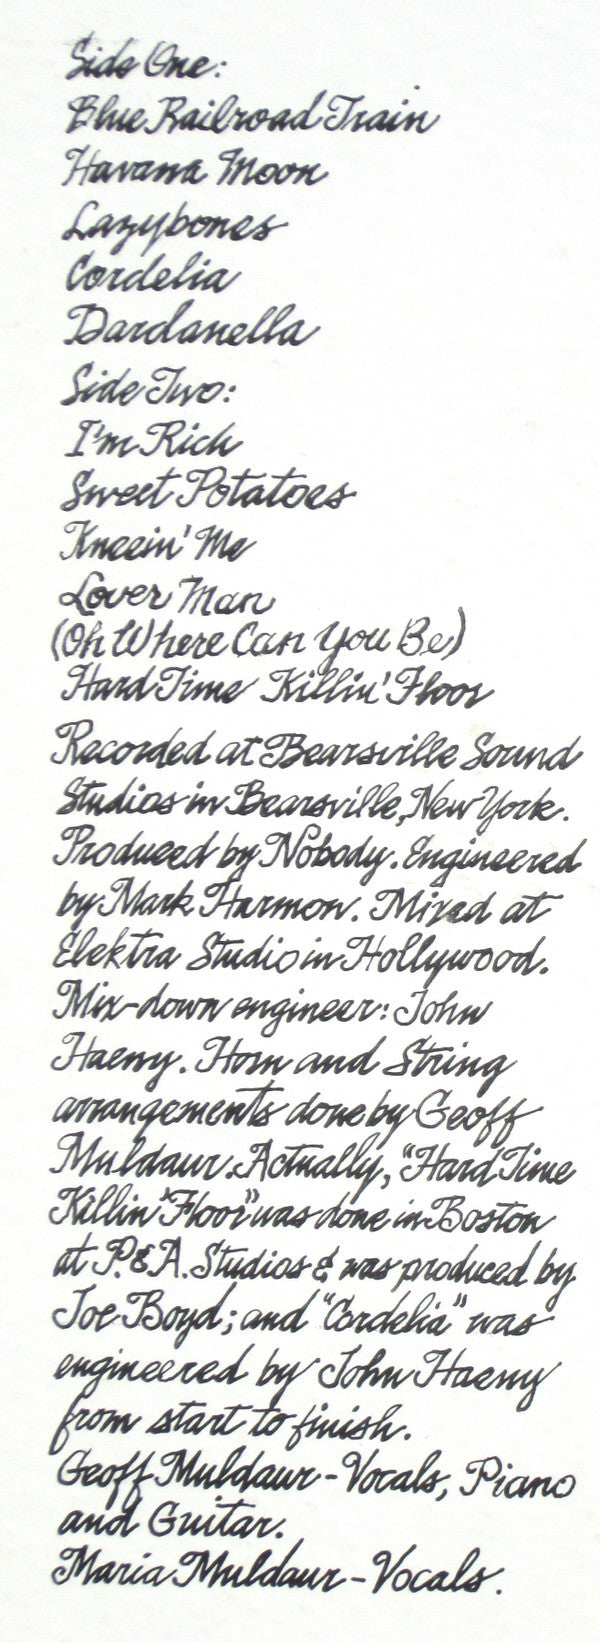 Side One:
Blue Railroad Train
Havana Moon
Lazybones
Cordelia
Dardanella
Side Two:
I'm Rich
Sweet Potatoes
Kneein' Me
Lover Man
(Oh Where Can You Be)
Hard Time Killin' Floor
Recorded at Bearsville Sound
Studios in Bearsville, New York.
Produced by Nobody. Engineered
by Mark Harmon. Mixed at
Elektra Studio in Hollywood.
Mix-down engineer: John
Haeny. Horn and String
arrangements done by Geoff
Muldaur. Actually, "Hard Time
Killin' Floor" was done in Boston
at P.&A. Studios & was produced by
Joe Boyd; and "Cordelia" was
engineered by John Haeny
from start to finish.
Geoff Muldaur - Vocals, Piano
and Guitar.
Maria Muldaur - Vocals.